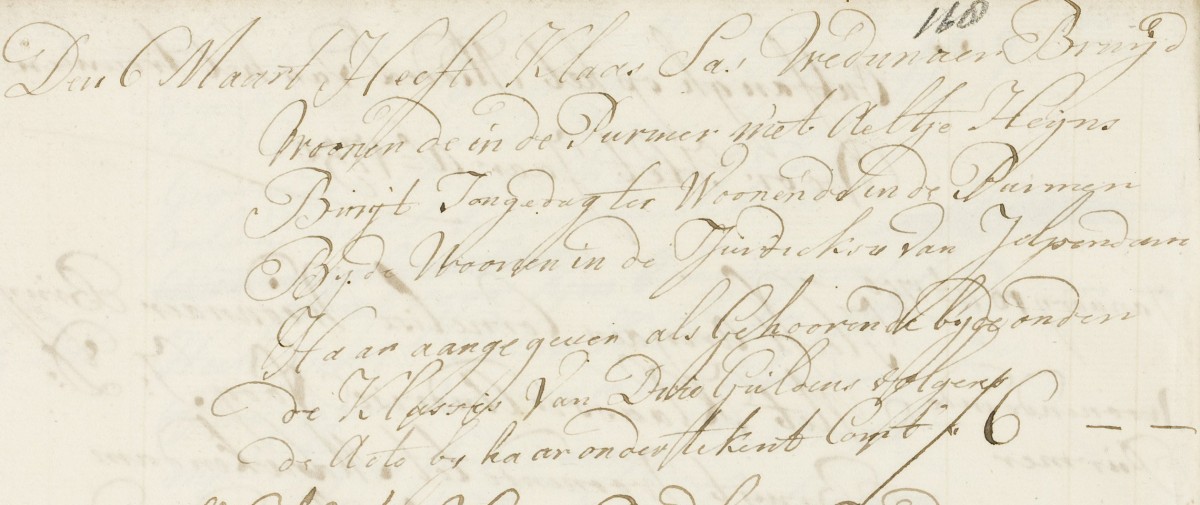 168
Den 6 Maart Heeft Klaas Sas Wedunaer Bruijd
Woonende in de Purmer met Aeltje Heijns
Bruijt Jongedogter Woonende in de Purmer
Byde Woonen in de Jurdickse van Jelpendam
Haar aangegeven als Gehoorende byde onder
de Klassis van Drie Guldens volgens
de Acte by haar onderteekent Compt 6 — —